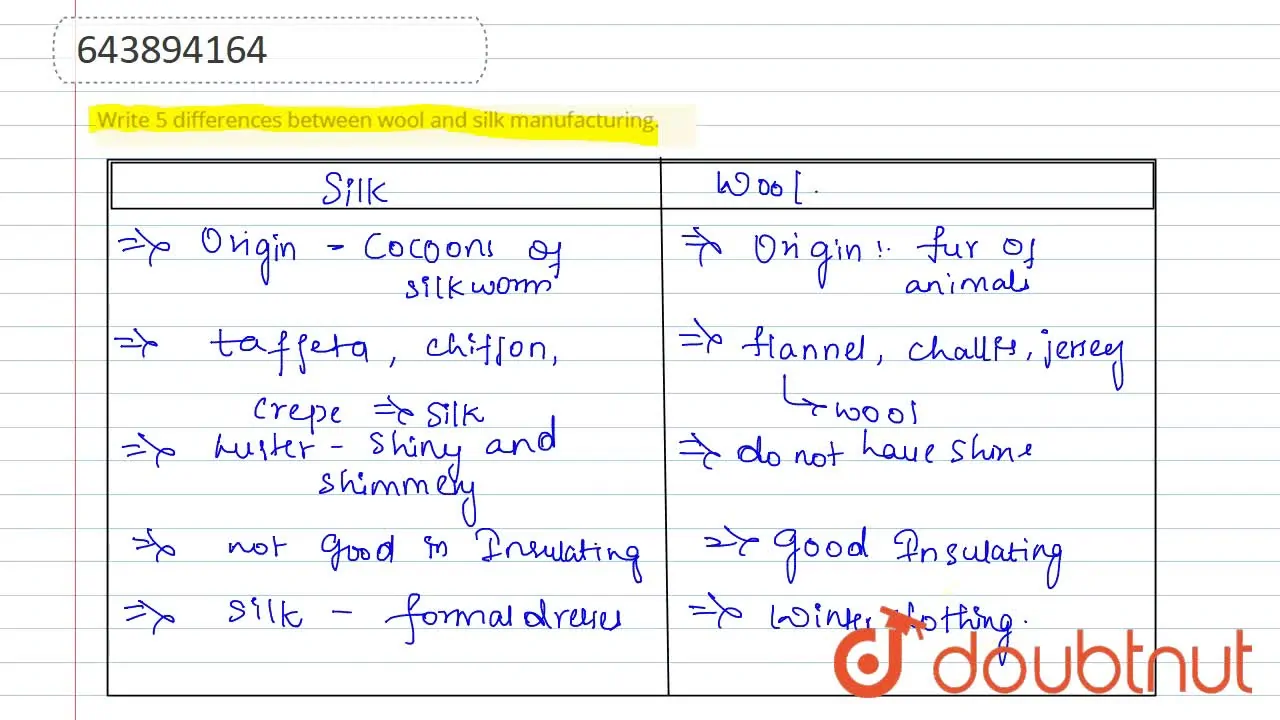 643894164
Write 5 differences between wool and silk manufacturing.
Silk
Wool.
⇒ Origin - Cocoons of
silkworm
⇒ Origin :. fur of
animals
⇒ taffeta, chiffon,
crepe ⇒ silk
⇒ flannel, challis, jersey
↳ wool
⇒ Luster - shiny and
shimmery
⇒ do not have shine
⇒ not good in Insulating
⇒ good Insulating
⇒ silk - formal dresses
⇒ Winter clothing.
doubtnut